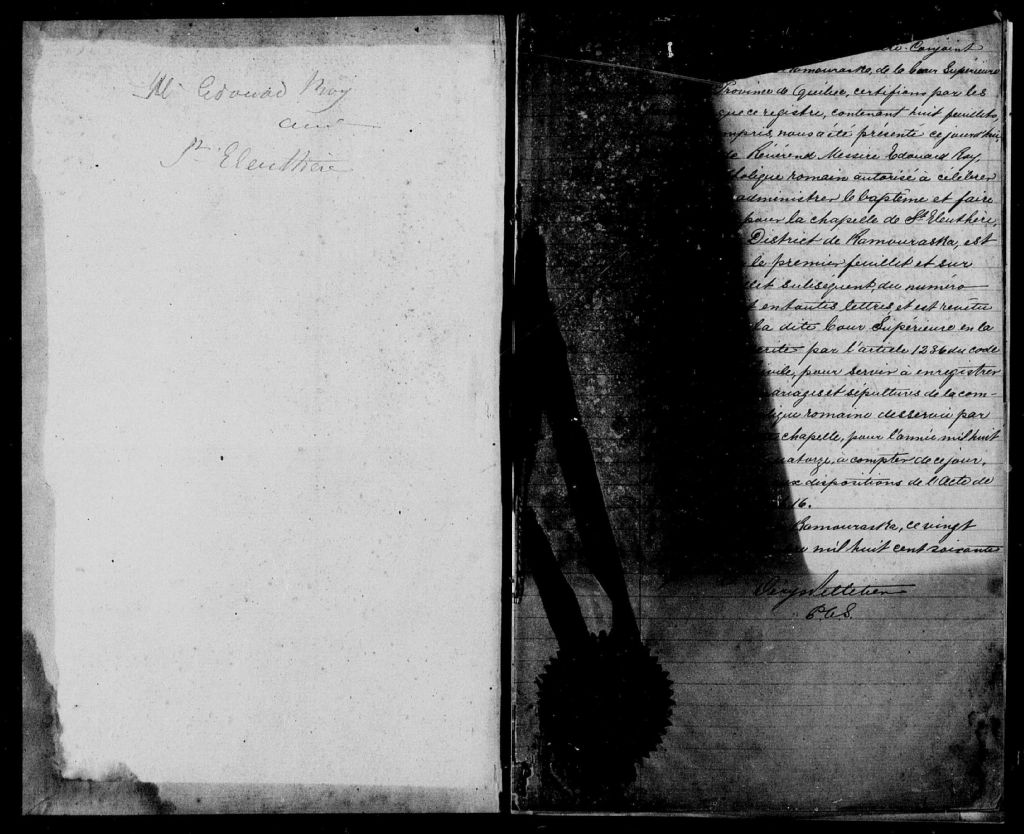 Mr Edouard Roy
curé
St Eleuthère
1
Conjoint
Kamouraska, de la Cour Supérieure
Province de Québec, certifions par les
que ce registre, contenant huit feuillets,
compris nous a été présenté ce jourd'hui,
le Révérend Messire Edouard Roy,
tholique romain autorisé à célébrer
administrer le baptême et faire
pour la chapelle de St Eleuthère,
District de Kamouraska, est
le premier feuillet et sur
let subséquent, du numéro
t en toutes lettres et est revêtu
la dite Cour Supérieure en la
crite par l'article 1236 du code
ivile, pour servir à enregistrer
ariages et sépultures de la com-
lique romaine desservie par
chapelle, pour l'année mil huit
uatorze, à compter de ce jour,
ux dispositions de l'Acte de
16.
Kamouraska, ce vingt
mil huit cent soixante
Pelletier
P.C.S.